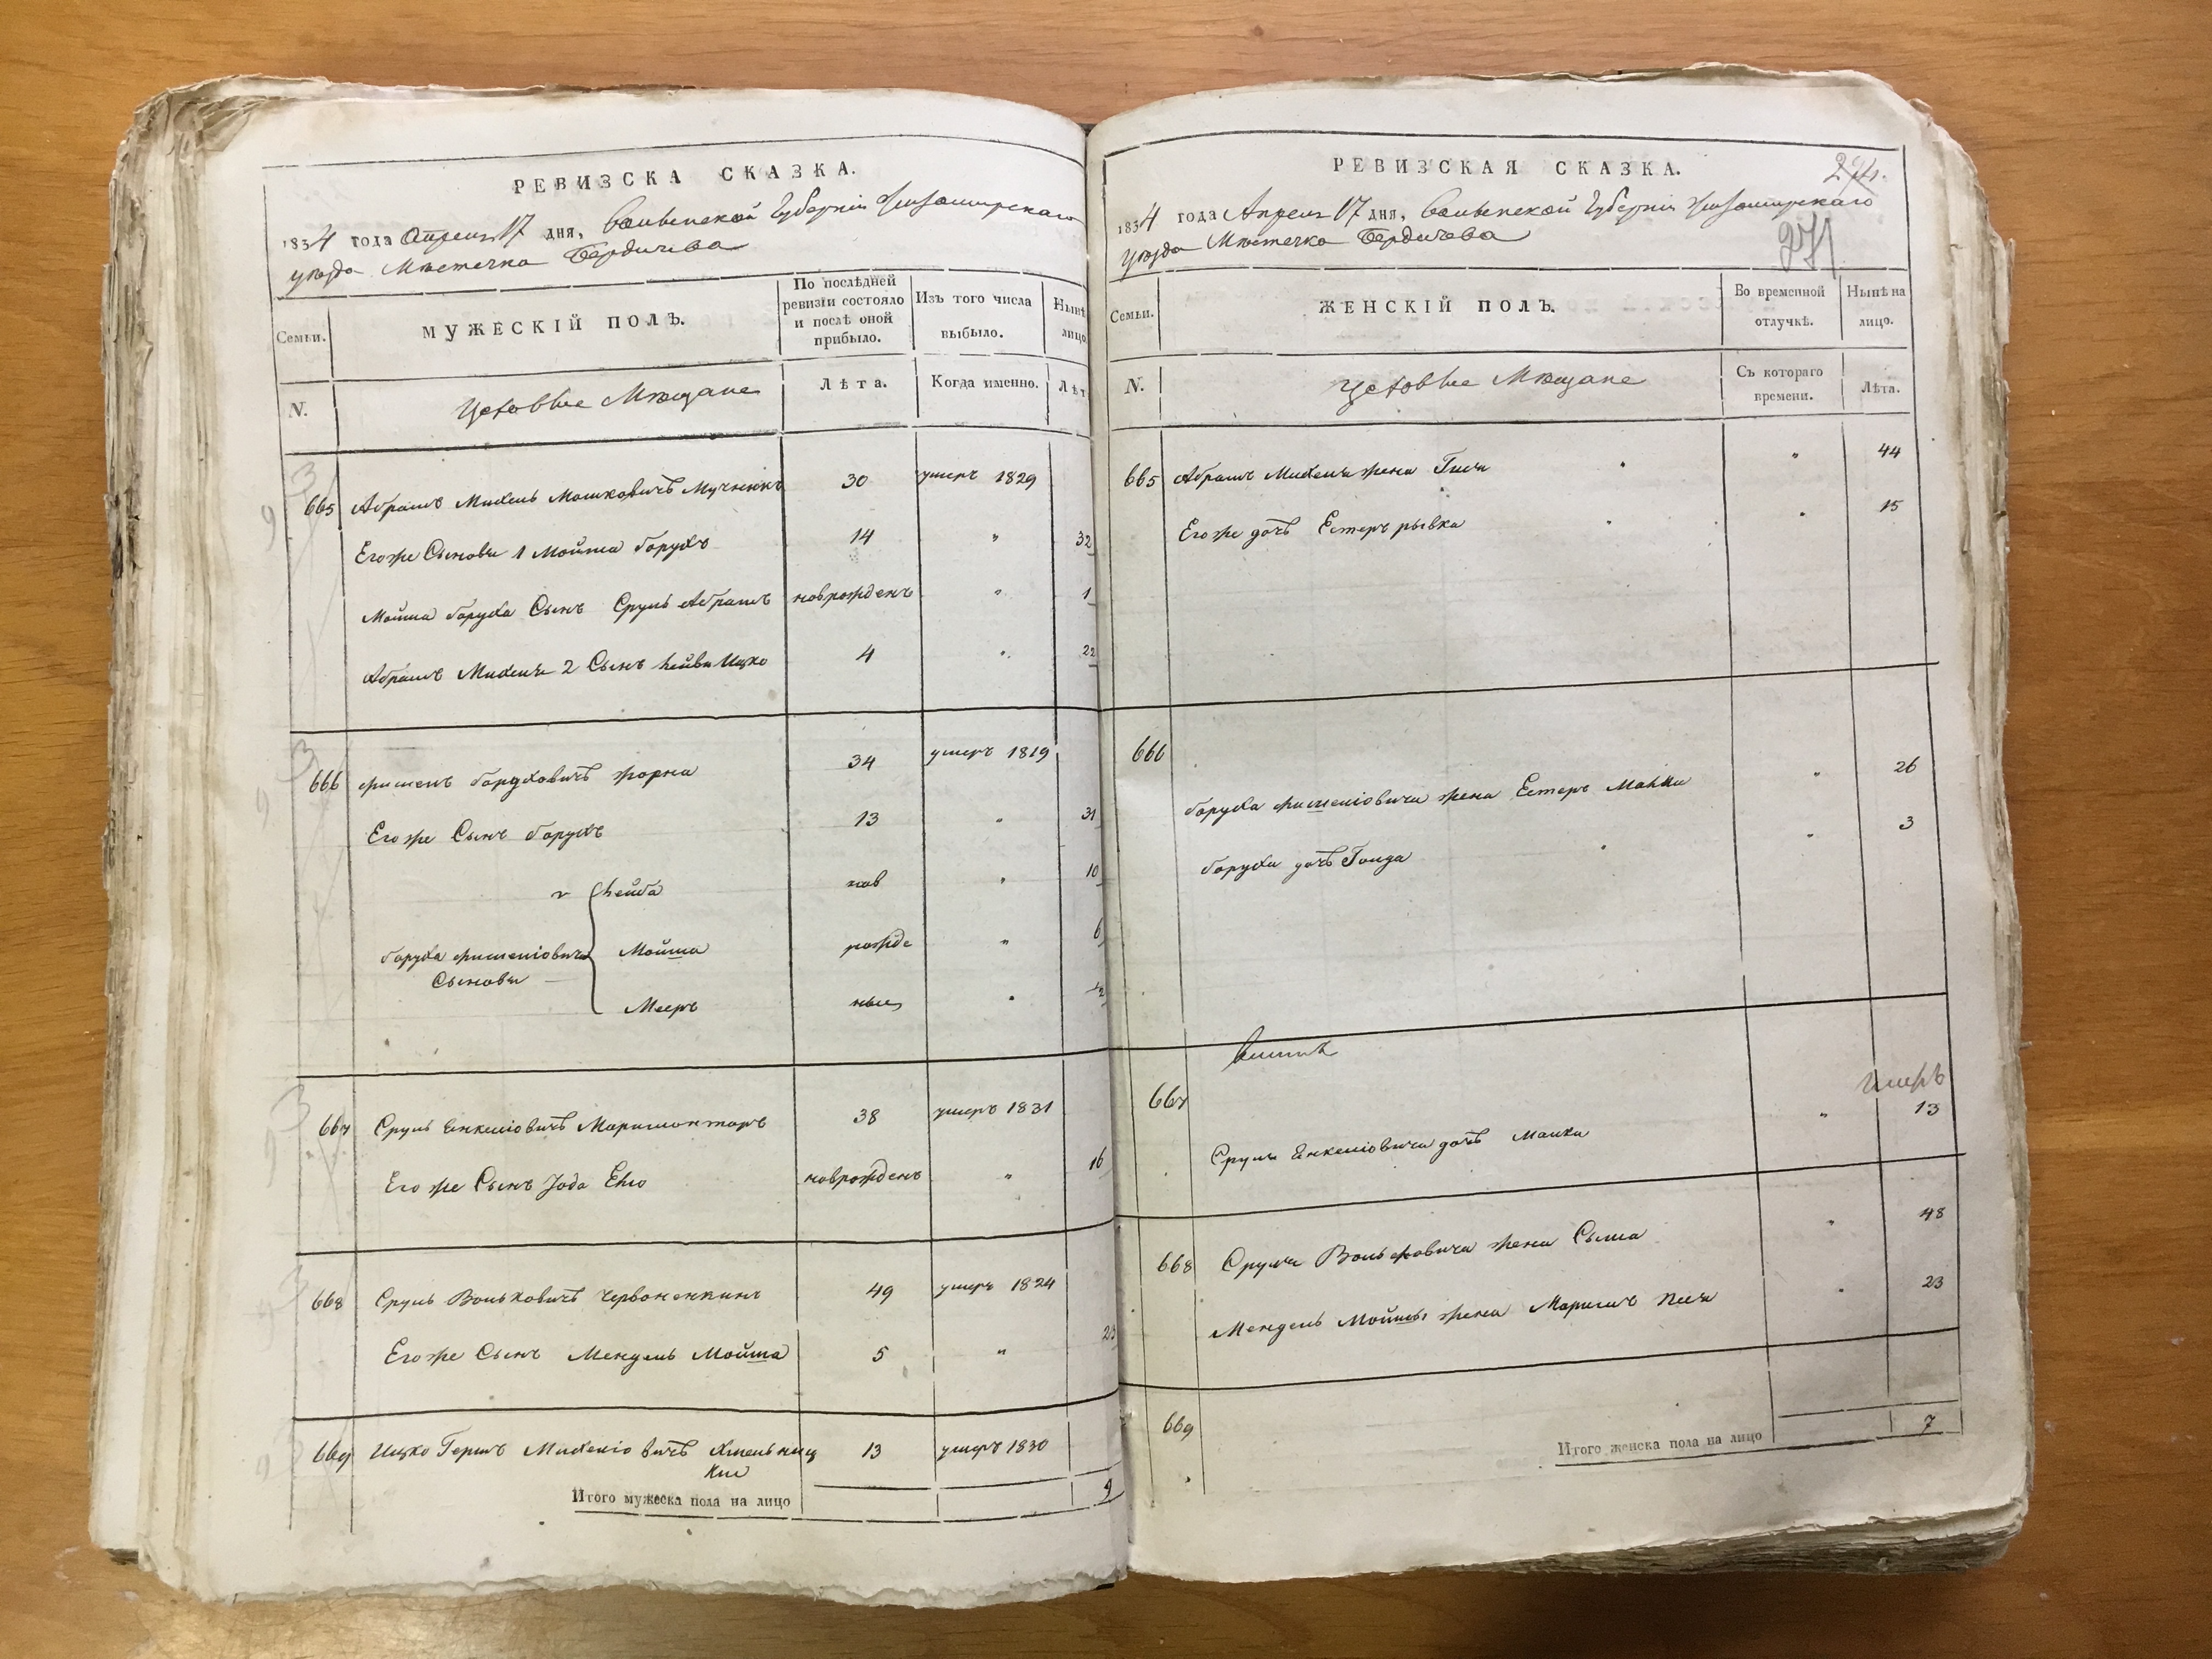 РЕВИЗСКА СКАЗКА.
1834 года Апреля 17 дня, Волынской Губернии Житомирскаго
уезда Местечка Бердичева
Семьи.
МУЖЕСКІЙ ПОЛЪ.
По послѣдней ревизіи состояло и послѣ оной прибыло.
Изъ того числа выбыло.
Нынѣ лицо
N.
Мѣщане
Лѣта.
Когда именно.
Лѣт
665 Абрамъ Михель Мошковичъ 30 умеръ 1829
Егоже Сыновья 1 Мойша Борухъ 14 " 32
Мойша Боруха Сынъ Сруль Абрамъ новрожденъ " 1
Абрамъ Михеля 2 Сынъ Лейба Ицко 4 " 22
666 Фишель Боруховичъ 34 умеръ 1819
Егоже Сынъ Борухъ 13 " 31
Лейба нов " 10
Боруха Фишелiовича Сыновья
Мойша рожде " 6
Мееръ ные "
667 Сруль Енкелiовичъ 38 умеръ 1831
Его же Сынъ новрожденъ " 16
668 Сруль Вольковичъ 49 умеръ 1824
Егоже Сынъ Мендель Мойша 5 " 23
669 Ицко Гершъ Михелiовичъ Хмельниц
кий
13 умеръ 1830
Итого мужеска пола на лицо 9
РЕВИЗСКАЯ СКАЗКА.
271
1834 года Апреля 17 дня, Волынской Губернии Житомирскаго
уезда Местечка Бердичева
Семьи.
ЖЕНСКІЙ ПОЛЪ.
Во временной отлучкѣ.
Нынѣ на лицо.
N.
Мѣщане
Съ котораго времени.
Лѣта.
665 Абрамъ Михеля жена " 44
Егоже дочь Естеръ рывка " 15
666
Боруха Фишелiовича жена Естеръ Малка " 26
Боруха дочь Голда " 3
667
умеръ
Сруля Енкелiовича дочь Малка " 13
668 Сруля Вольфовича жена Сыма " 48
Мендель Мойшы жена " 23
669
Итого женска пола на лицо 7